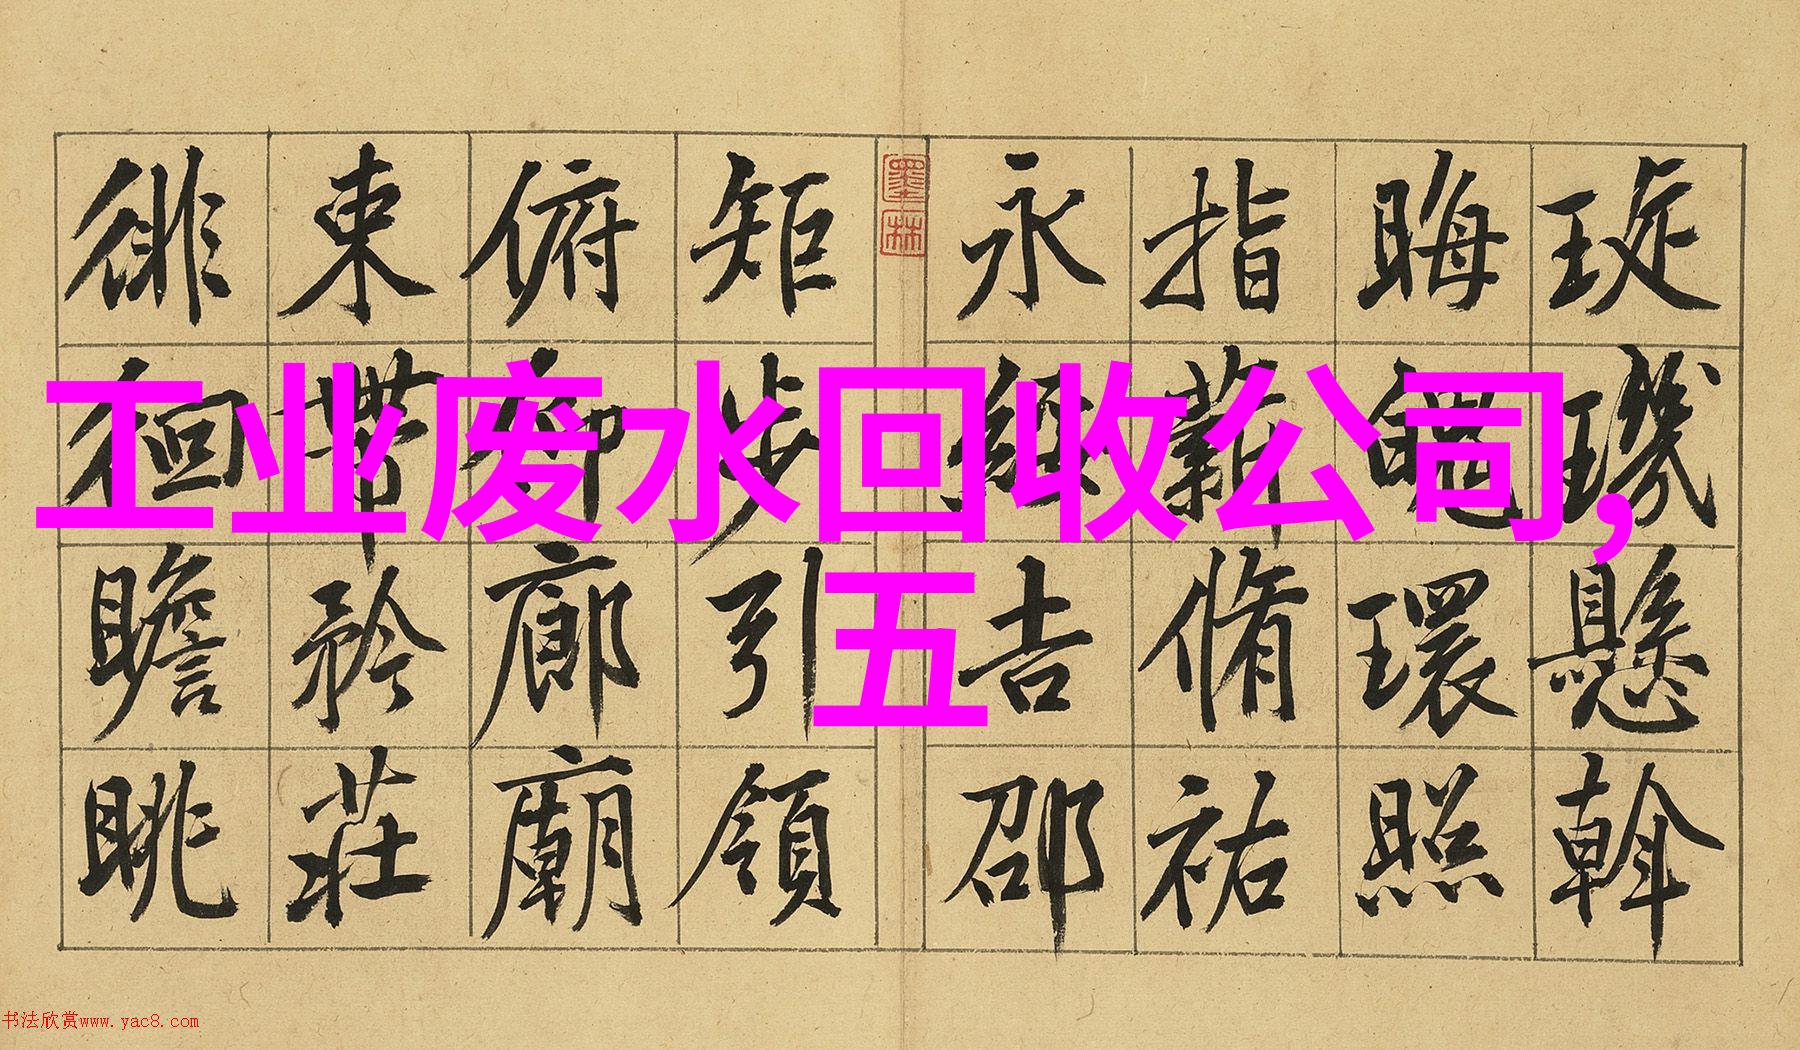 工业废水回收公司,
五
琁璣懸斡
晦魄環照
指薪脩祐
永綏吉邵
墨林
矩步引領
俯仰廊廟
束帶矜莊
徘徊瞻眺
书法欣赏www.yac8.com